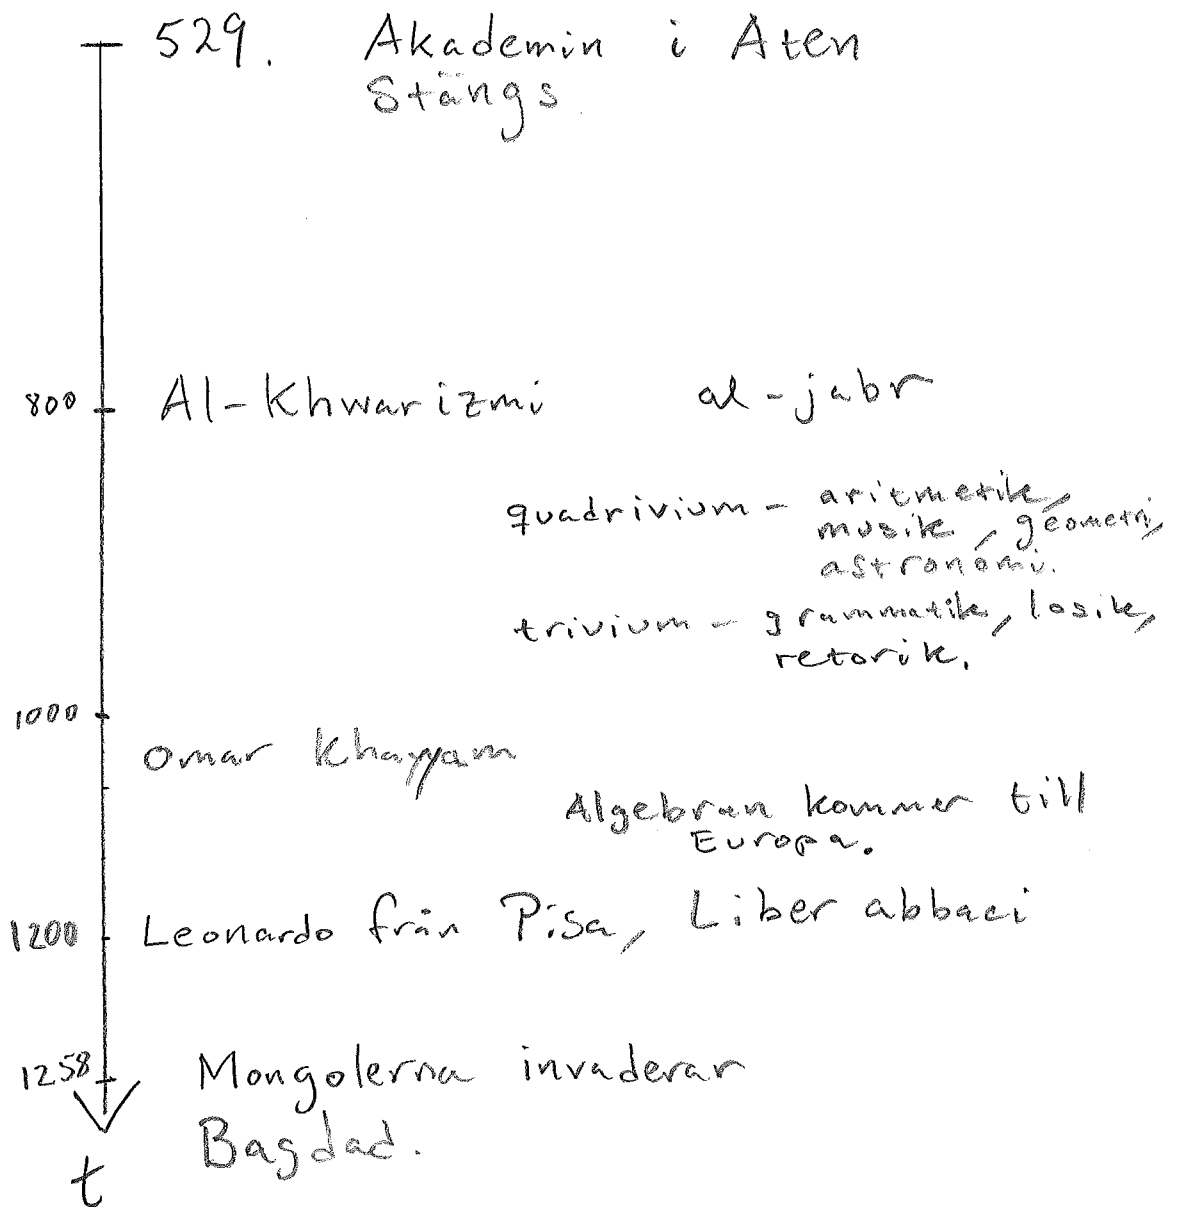 529. Akademin i Aten
Stängs
800 Al-Khwarizmi al-jabr
quadrivium - aritmetik,
musik, geometri,
astronomi.
trivium - grammatik, logik,
retorik.
1000
Omar Khayyam
Algebran kommer till
Europa.
1200 Leonardo från Pisa, Liber abbaci
1258 Mongolerna invaderar
Bagdad.
t